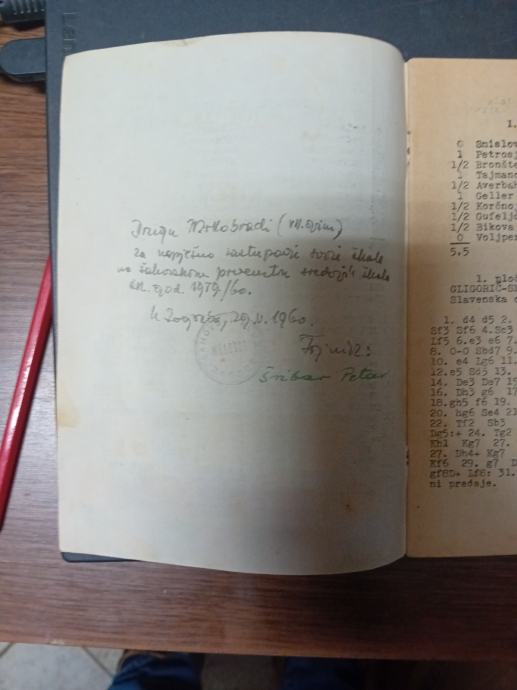 Drugu Mrkobradi (VII. gim)
za uspješno zastupanje svoje škole
na šahovskom prvenstvu srednjih škola
šk. god. 1959/60.
U Zagrebu, 29. V. 1960.
Šribar Petar
1.
0 Smislov
1 Petrosj
1/2 Bronšte
1 Tajmano
1/2 Averbah
1 Geller
1/2 Korčnoj
1/2 Gufeljd
1/2 Bikova
0 Voljper
5.5
1. ploč
GLIGORIĆ-S
Slavenska o
1. d4 d5 2.
Sf3 Sf6 4.Sc3
Lf5 6.e3 e6 7.
8. O-O Sbd7 9.
10. e4 Lg6 11.
12.e5 Sd5 13.
14. De3 De7 15
16. Dh3 g6 17
18.gh5 f6 19.
20. hg6 Se4 21
22. Tf2 Sb3
Dg5:+ 24. Tg2
Kh1 Kg7 27.
27. Dh4+ Kg7
Kf6 29. g7 D
gf8D+ Lf8: 31.
ni predaje.